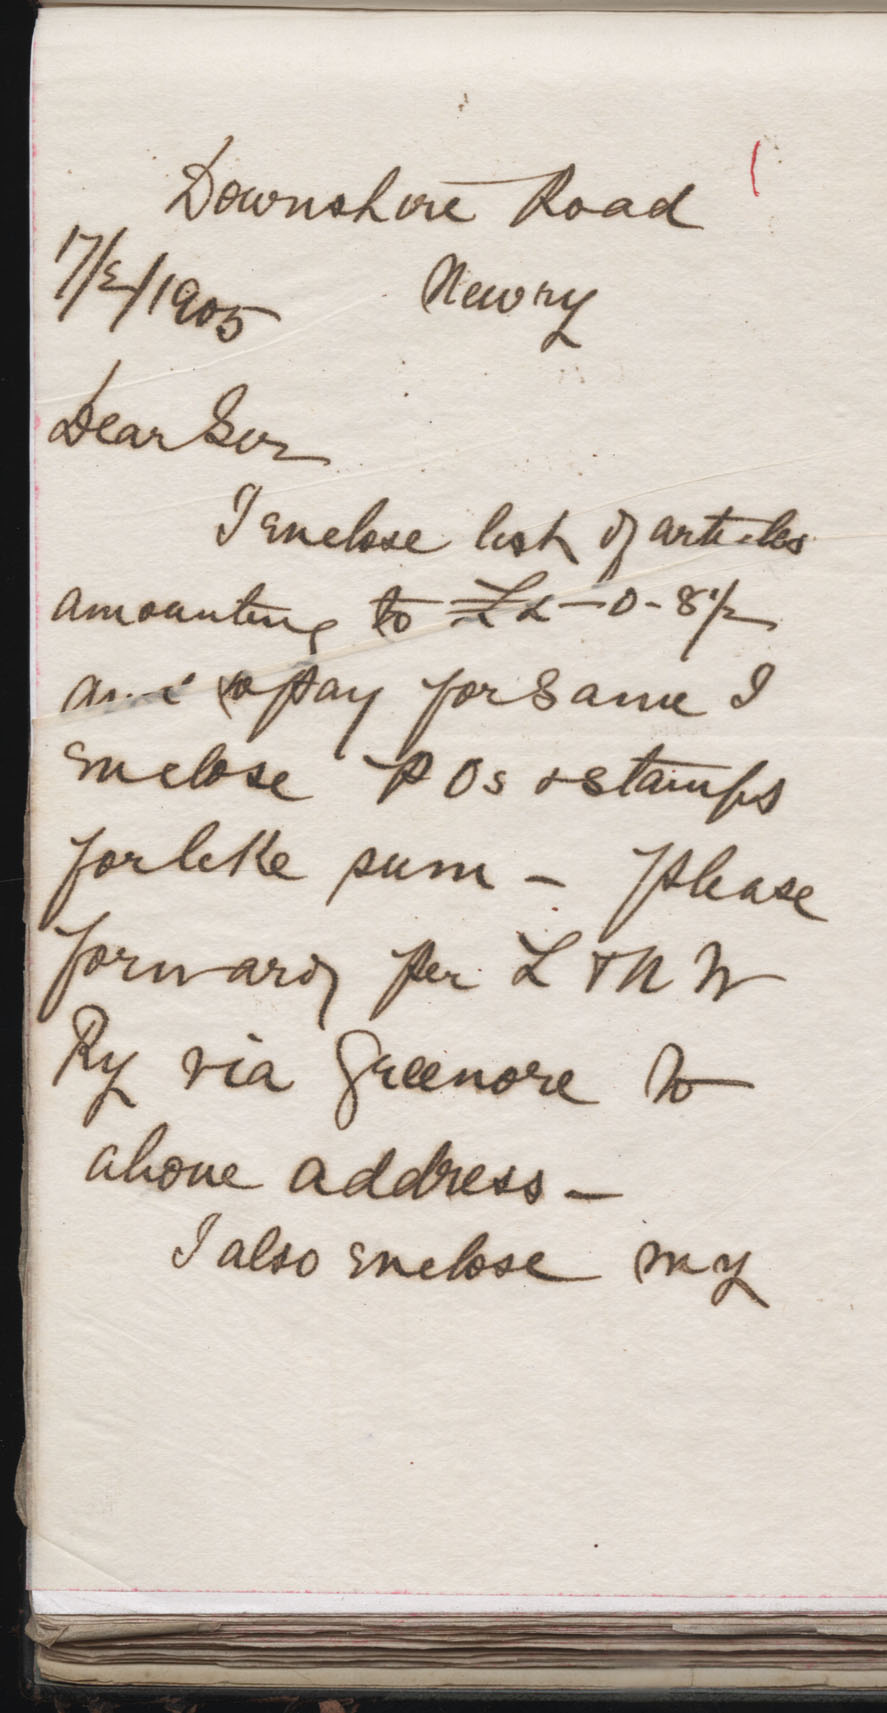 Downshire Road
17/2/1905 Newry
Dear Sir
I enclose list of articles
amounting to £2-0-8½
and to pay for same I
enclose P Os & stamps
for like sum - please
forward per L & N W
Ry via Greenore to
above address -
I also enclose my